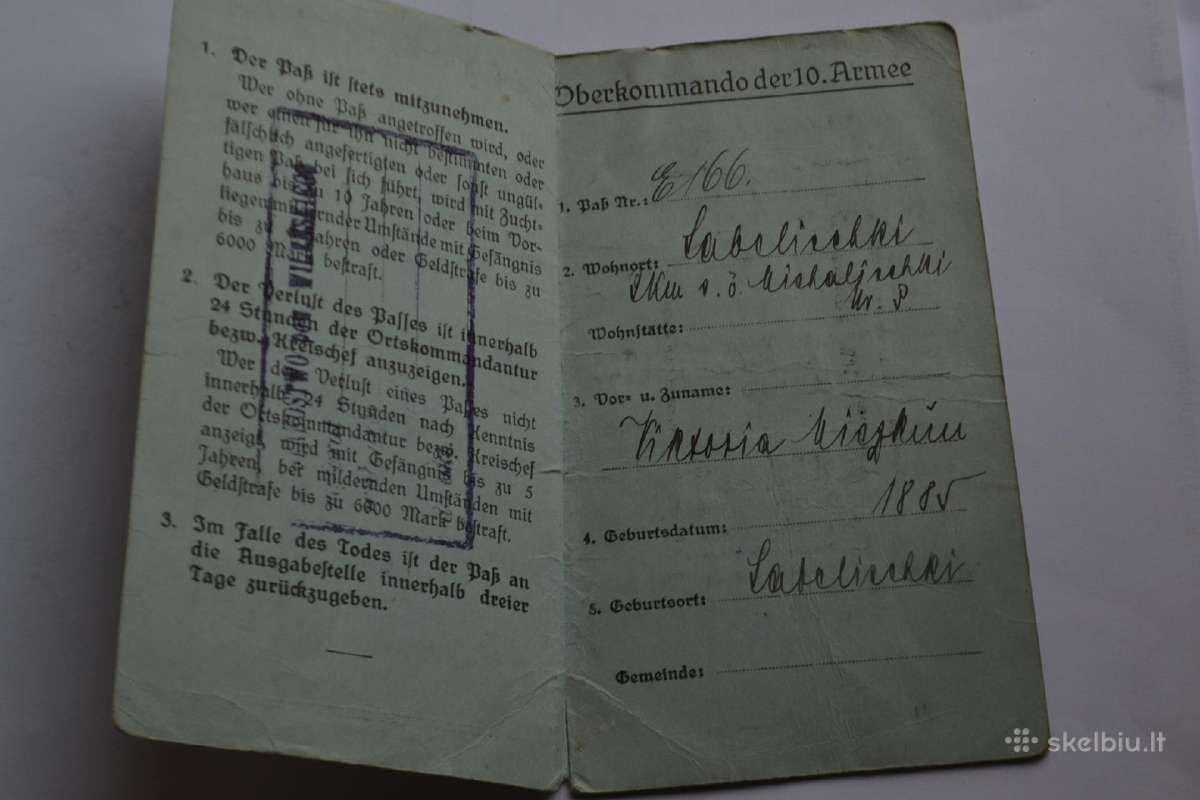 1. Der Paß ist stets mitzunehmen.
Wer ohne Paß angetroffen wird, oder
wer einen für ihn nicht bestimmten oder
fälschlich angefertigten oder sonst ungül-
tigen Paß bei sich führt, wird mit Zucht-
haus bis zu 10 Jahren oder beim Vor-
liegen mildernder Umstände mit Gefängnis
bis zu Jahren oder Geldstrafe bis zu
6000 Mark bestraft.
2. Der Verlust des Passes ist innerhalb
24 Stunden der Ortskommandantur
bezw. Kreischef anzuzeigen.
Wer den Verlust eines Passes nicht
innerhalb 24 Stunden nach Kenntnis
der Ortskommandantur bezw. Kreischef
anzeigt, wird mit Gefängnis bis zu 5
Jahren, bei mildernden Umständen mit
Geldstrafe bis zu 6000 Mark bestraft.
3. Im Falle des Todes ist der Paß an
die Ausgabestelle innerhalb dreier
Tage zurückzugeben.
Oberkommando der 10. Armee
1. Paß Nr.: E166.
2. Wohnort: Labelischki
2km s. ö. Michalischki
Wohnstätte: Nr. 8
3. Vor- u. Zuname:
Viktoria
4. Geburtsdatum: 1885
5. Geburtsort: Labelischki
Gemeinde:
skelbiu.lt